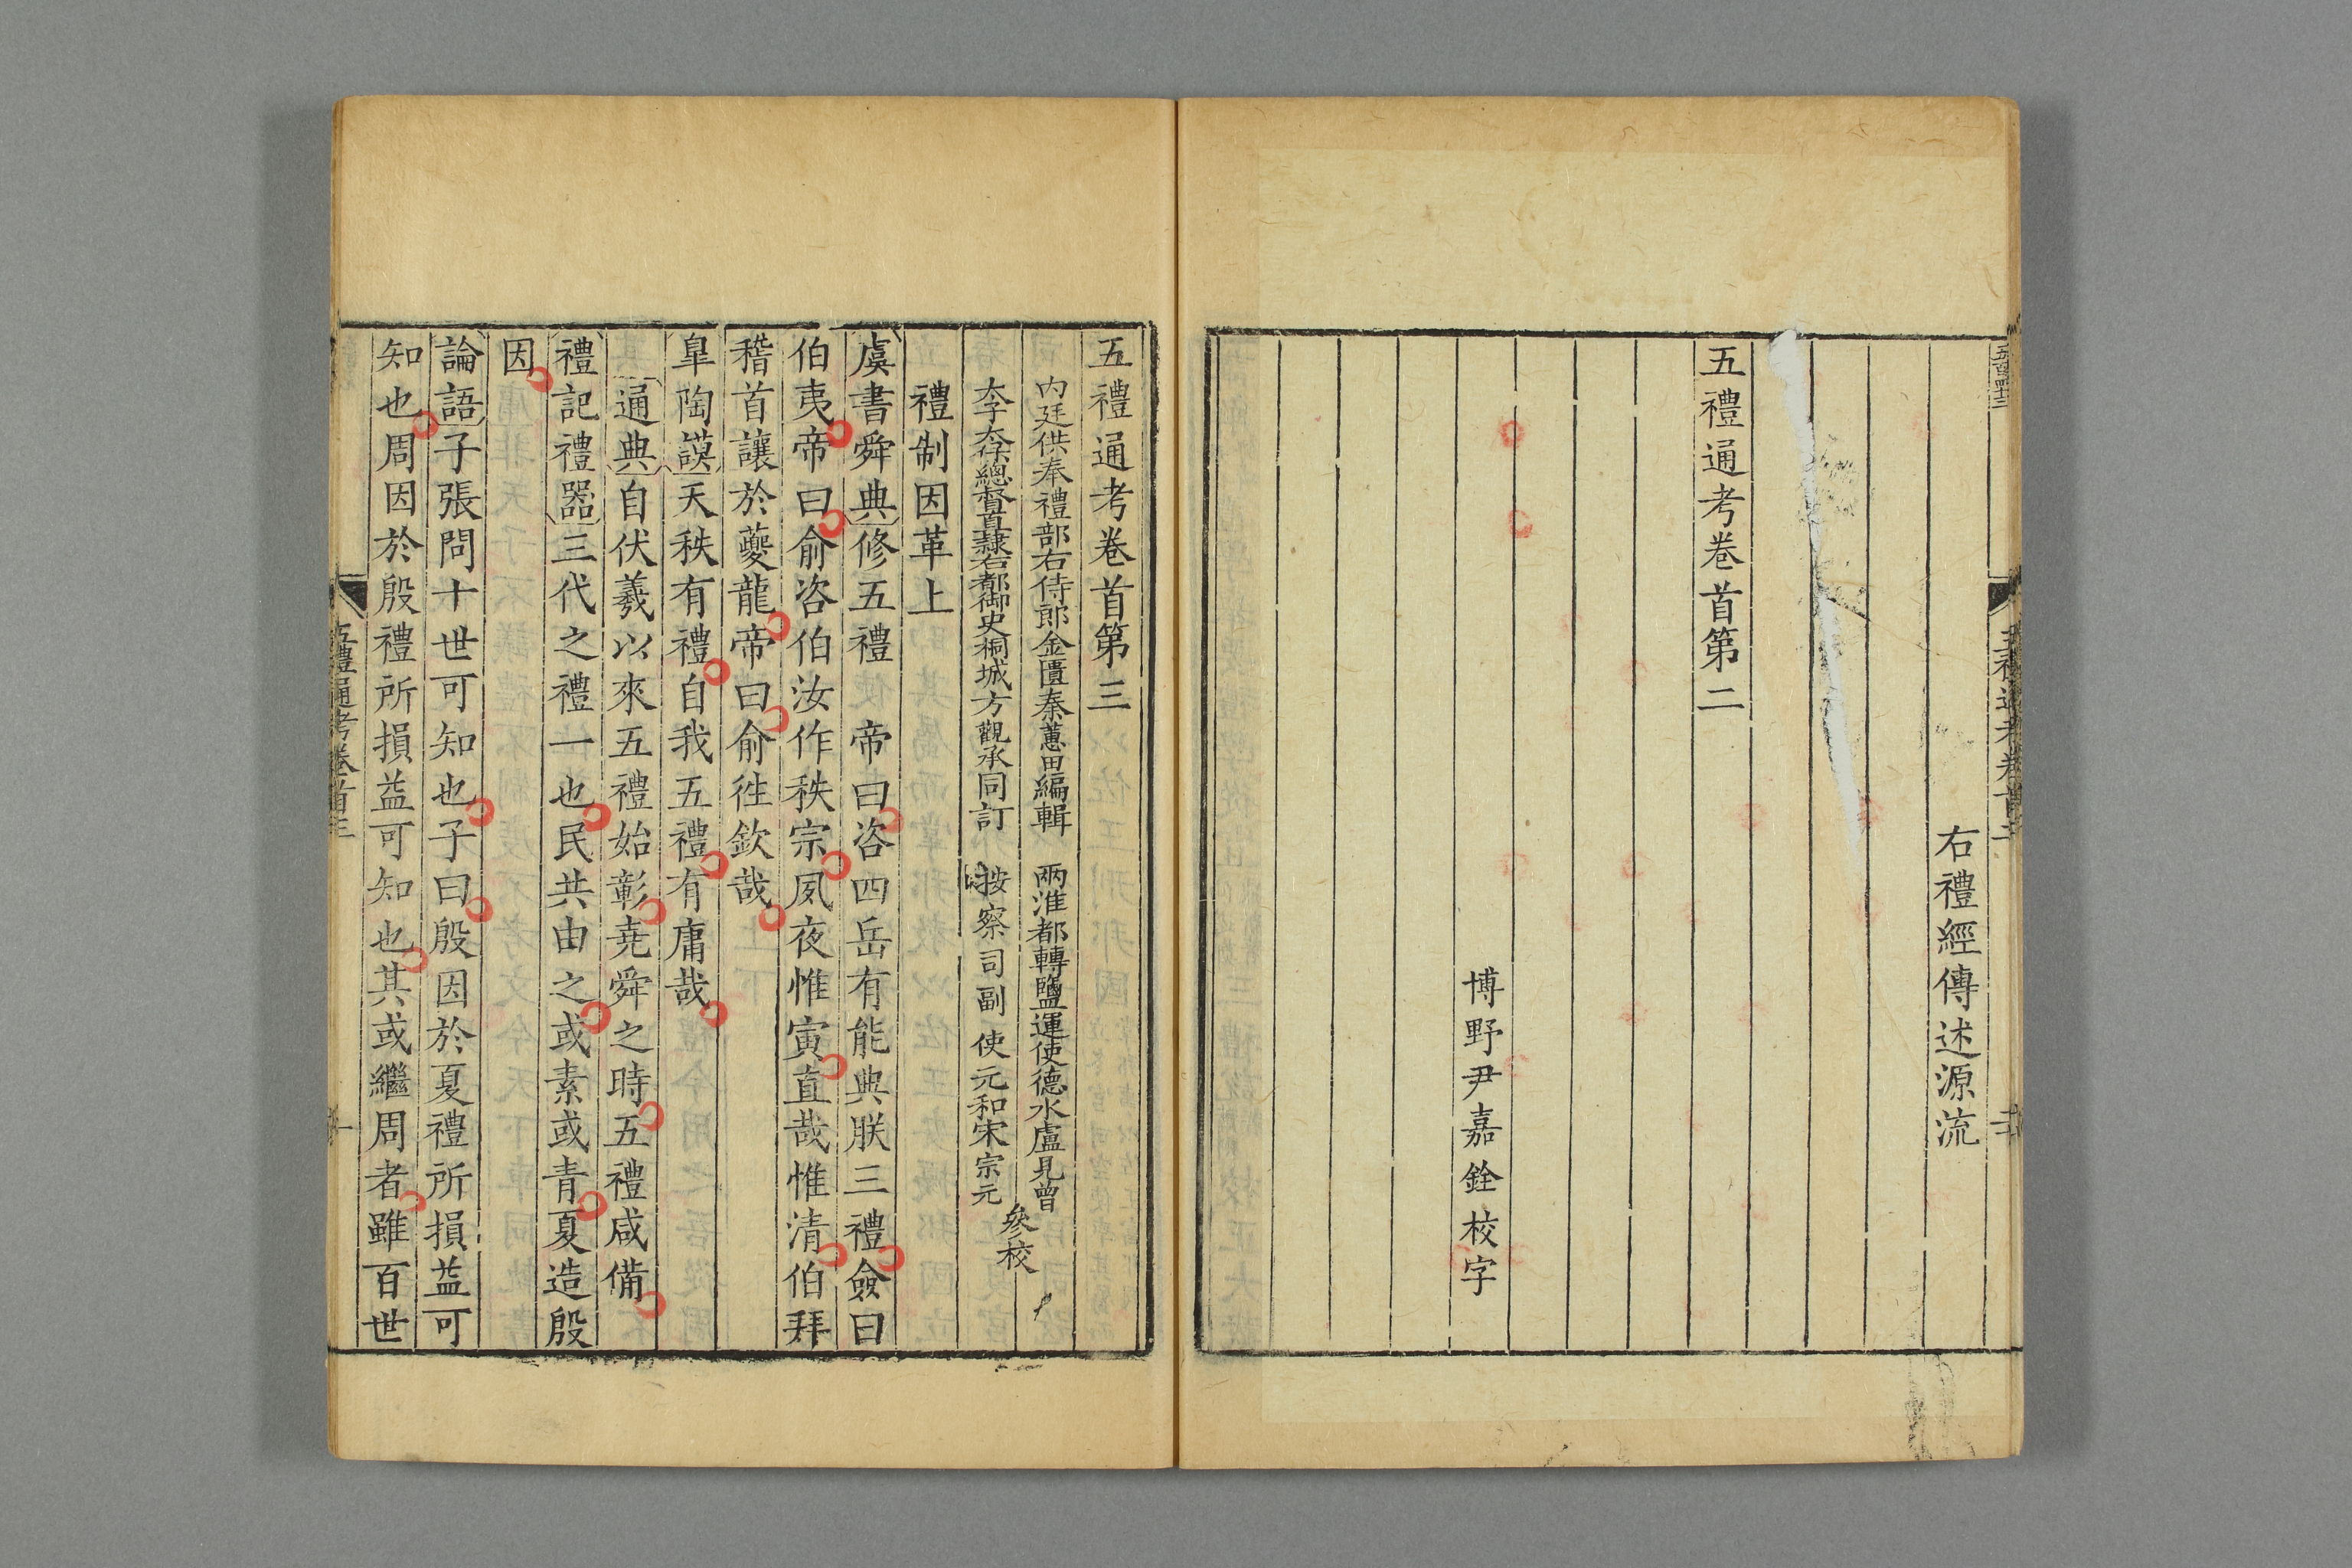 右禮經傳述源流
五禮通考卷首第二
博野尹嘉銓校字
五禮通考卷首第三
内廷供奉禮部右侍郎金匱秦蕙田編輯 兩淮都轉鹽運使德水盧見曾
太子太保總督直隸右都御史桐城方觀承同訂 按察司副使元和宋宗元
參校
禮制因革上
虞書舜典修五禮 帝曰咨四岳有能典朕三禮僉曰
伯夷帝曰俞咨伯汝作秩宗夙夜惟寅直哉惟清伯拜
稽首讓於夔龍帝曰俞徃欽哉
臯陶謨天秩有禮自我五禮有庸哉
通典自伏羲以來五禮始彰堯舜之時五禮咸備
禮記禮器三代之禮一也民共由之或素或青夏造殷
因
論語子張問十世可知也子曰殷因於夏禮所損益可
知也周因於殷禮所損益可知也其或繼周者雖百世
五禮通考卷首三